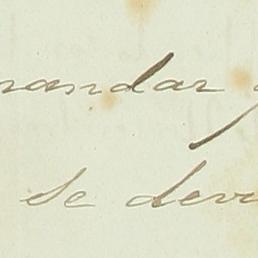 mandar
se dev